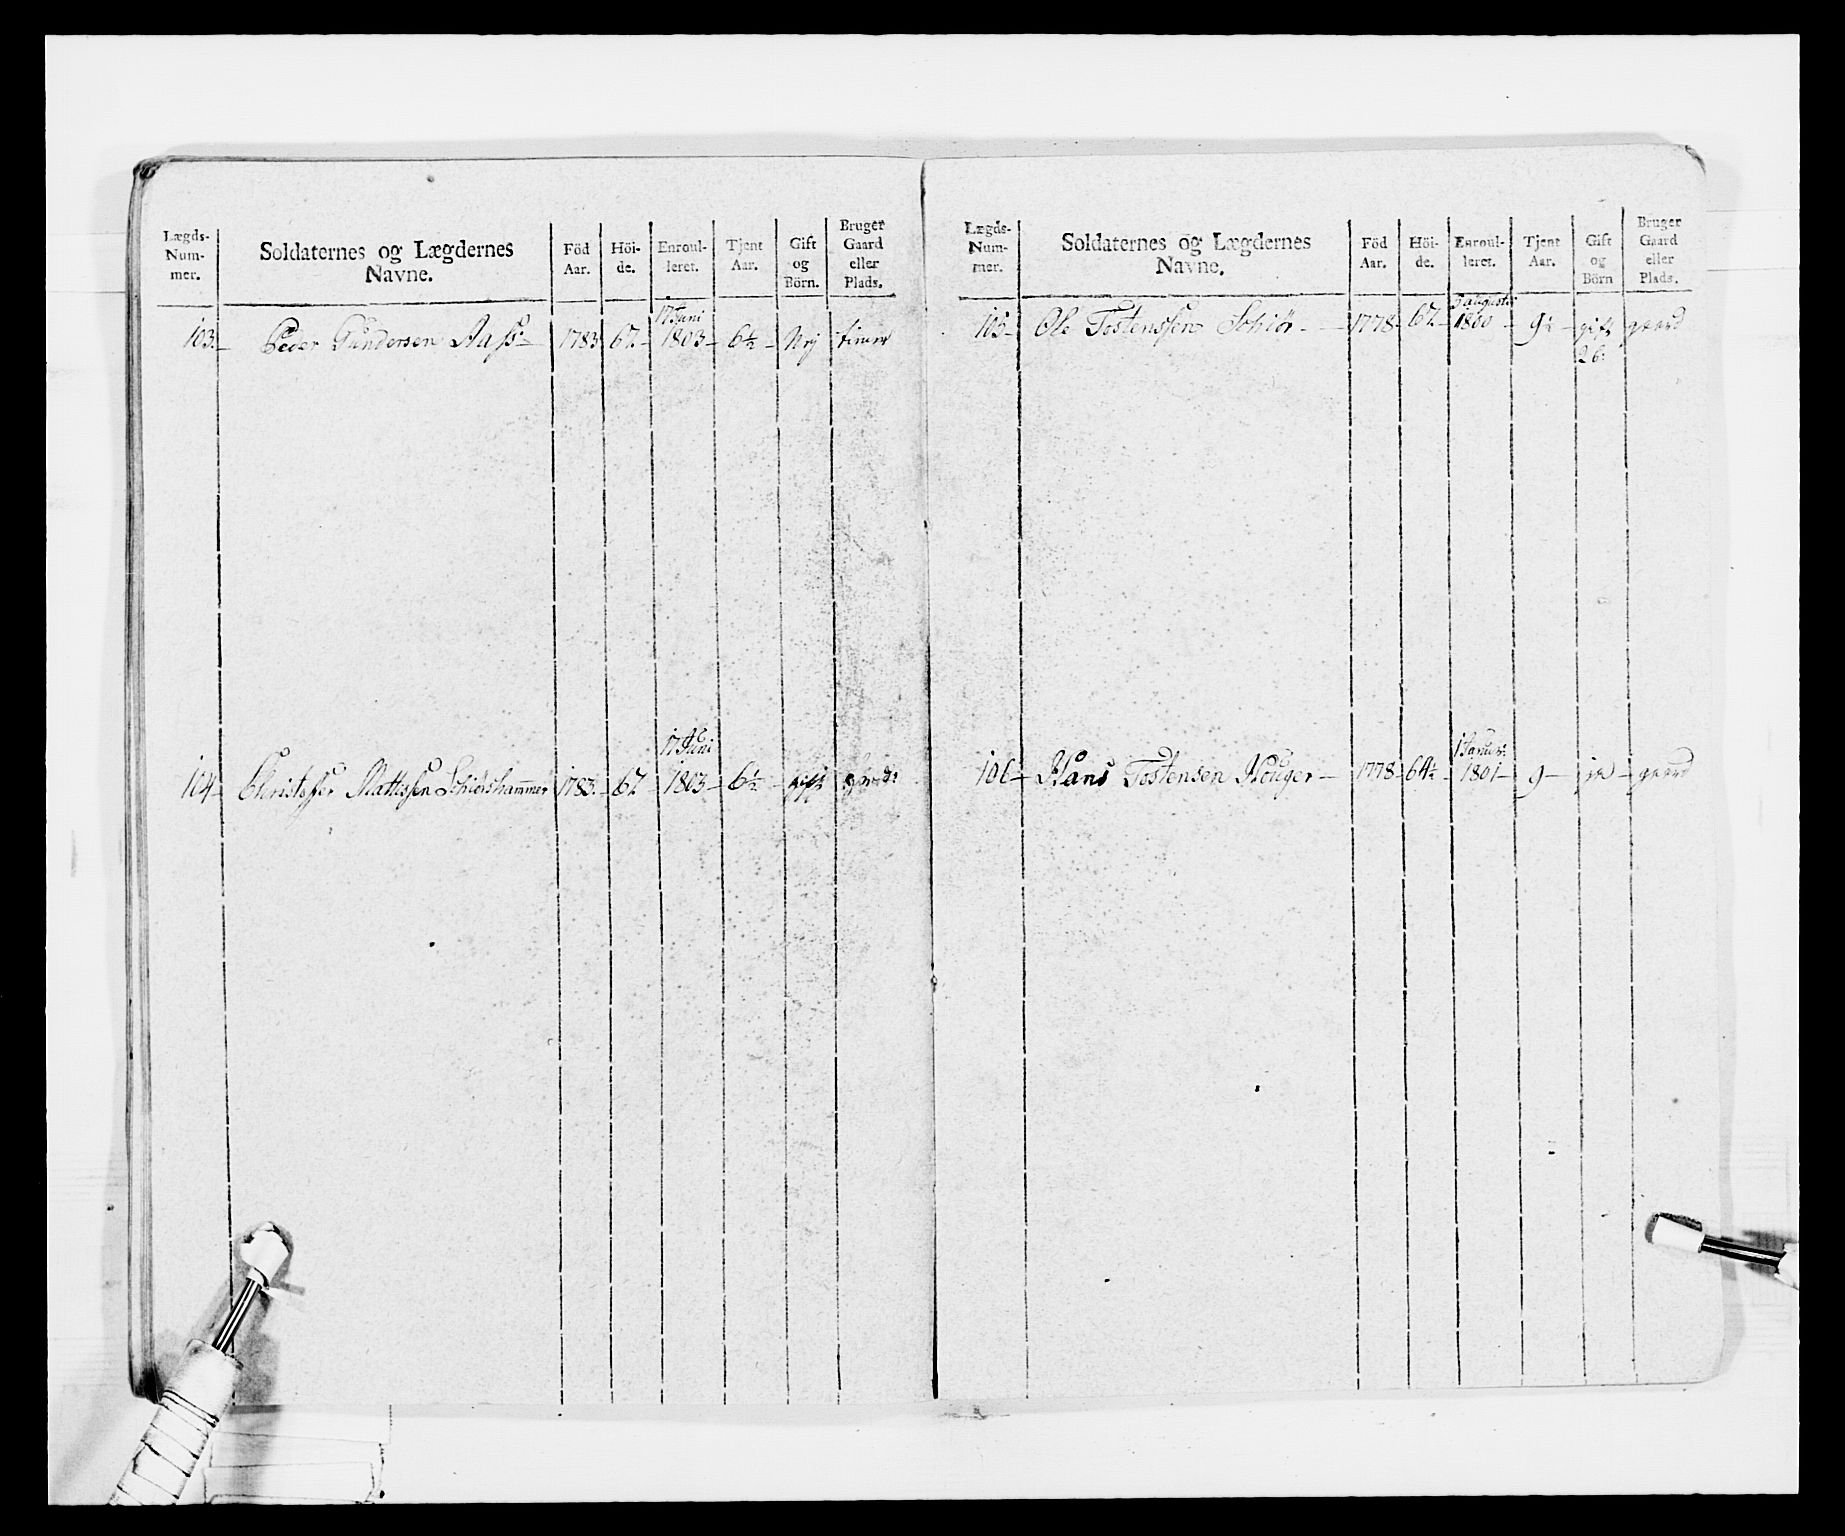 Lægds-
Num-
mer.
Soldaternes og Lægdernes
Navne.
Föd
Aar.
Höi-
de.
Enroul-
leret.
Tjent
Aar.
Gift
og
Börn.
Bruger
Gaard
eller
Plads.
17 Juni
103.- Peder Gundersen Aass- 1783 67.- 1803- 6½- Nej tiener
17 Juni
104- Christoffer Mattissen Schiørshammer 1783.- 67.- 1803- 6½- gift gaard:
Lægds-
Num-
mer.
Soldaternes og Lægdernes
Navne.
Föd
Aar.
Höi-
de.
Enroul-
leret.
Tjent
Aar.
Gift
og
Börn
Bruger
Gaard
eller
Plads.
105- Ole Tostenssen Schiør - 1778- 67.- 1800- 9½- gift gaard
2 b:
106- Hans Tostensen Houger- 1778- 64½- 1801- 9- ja- gaard